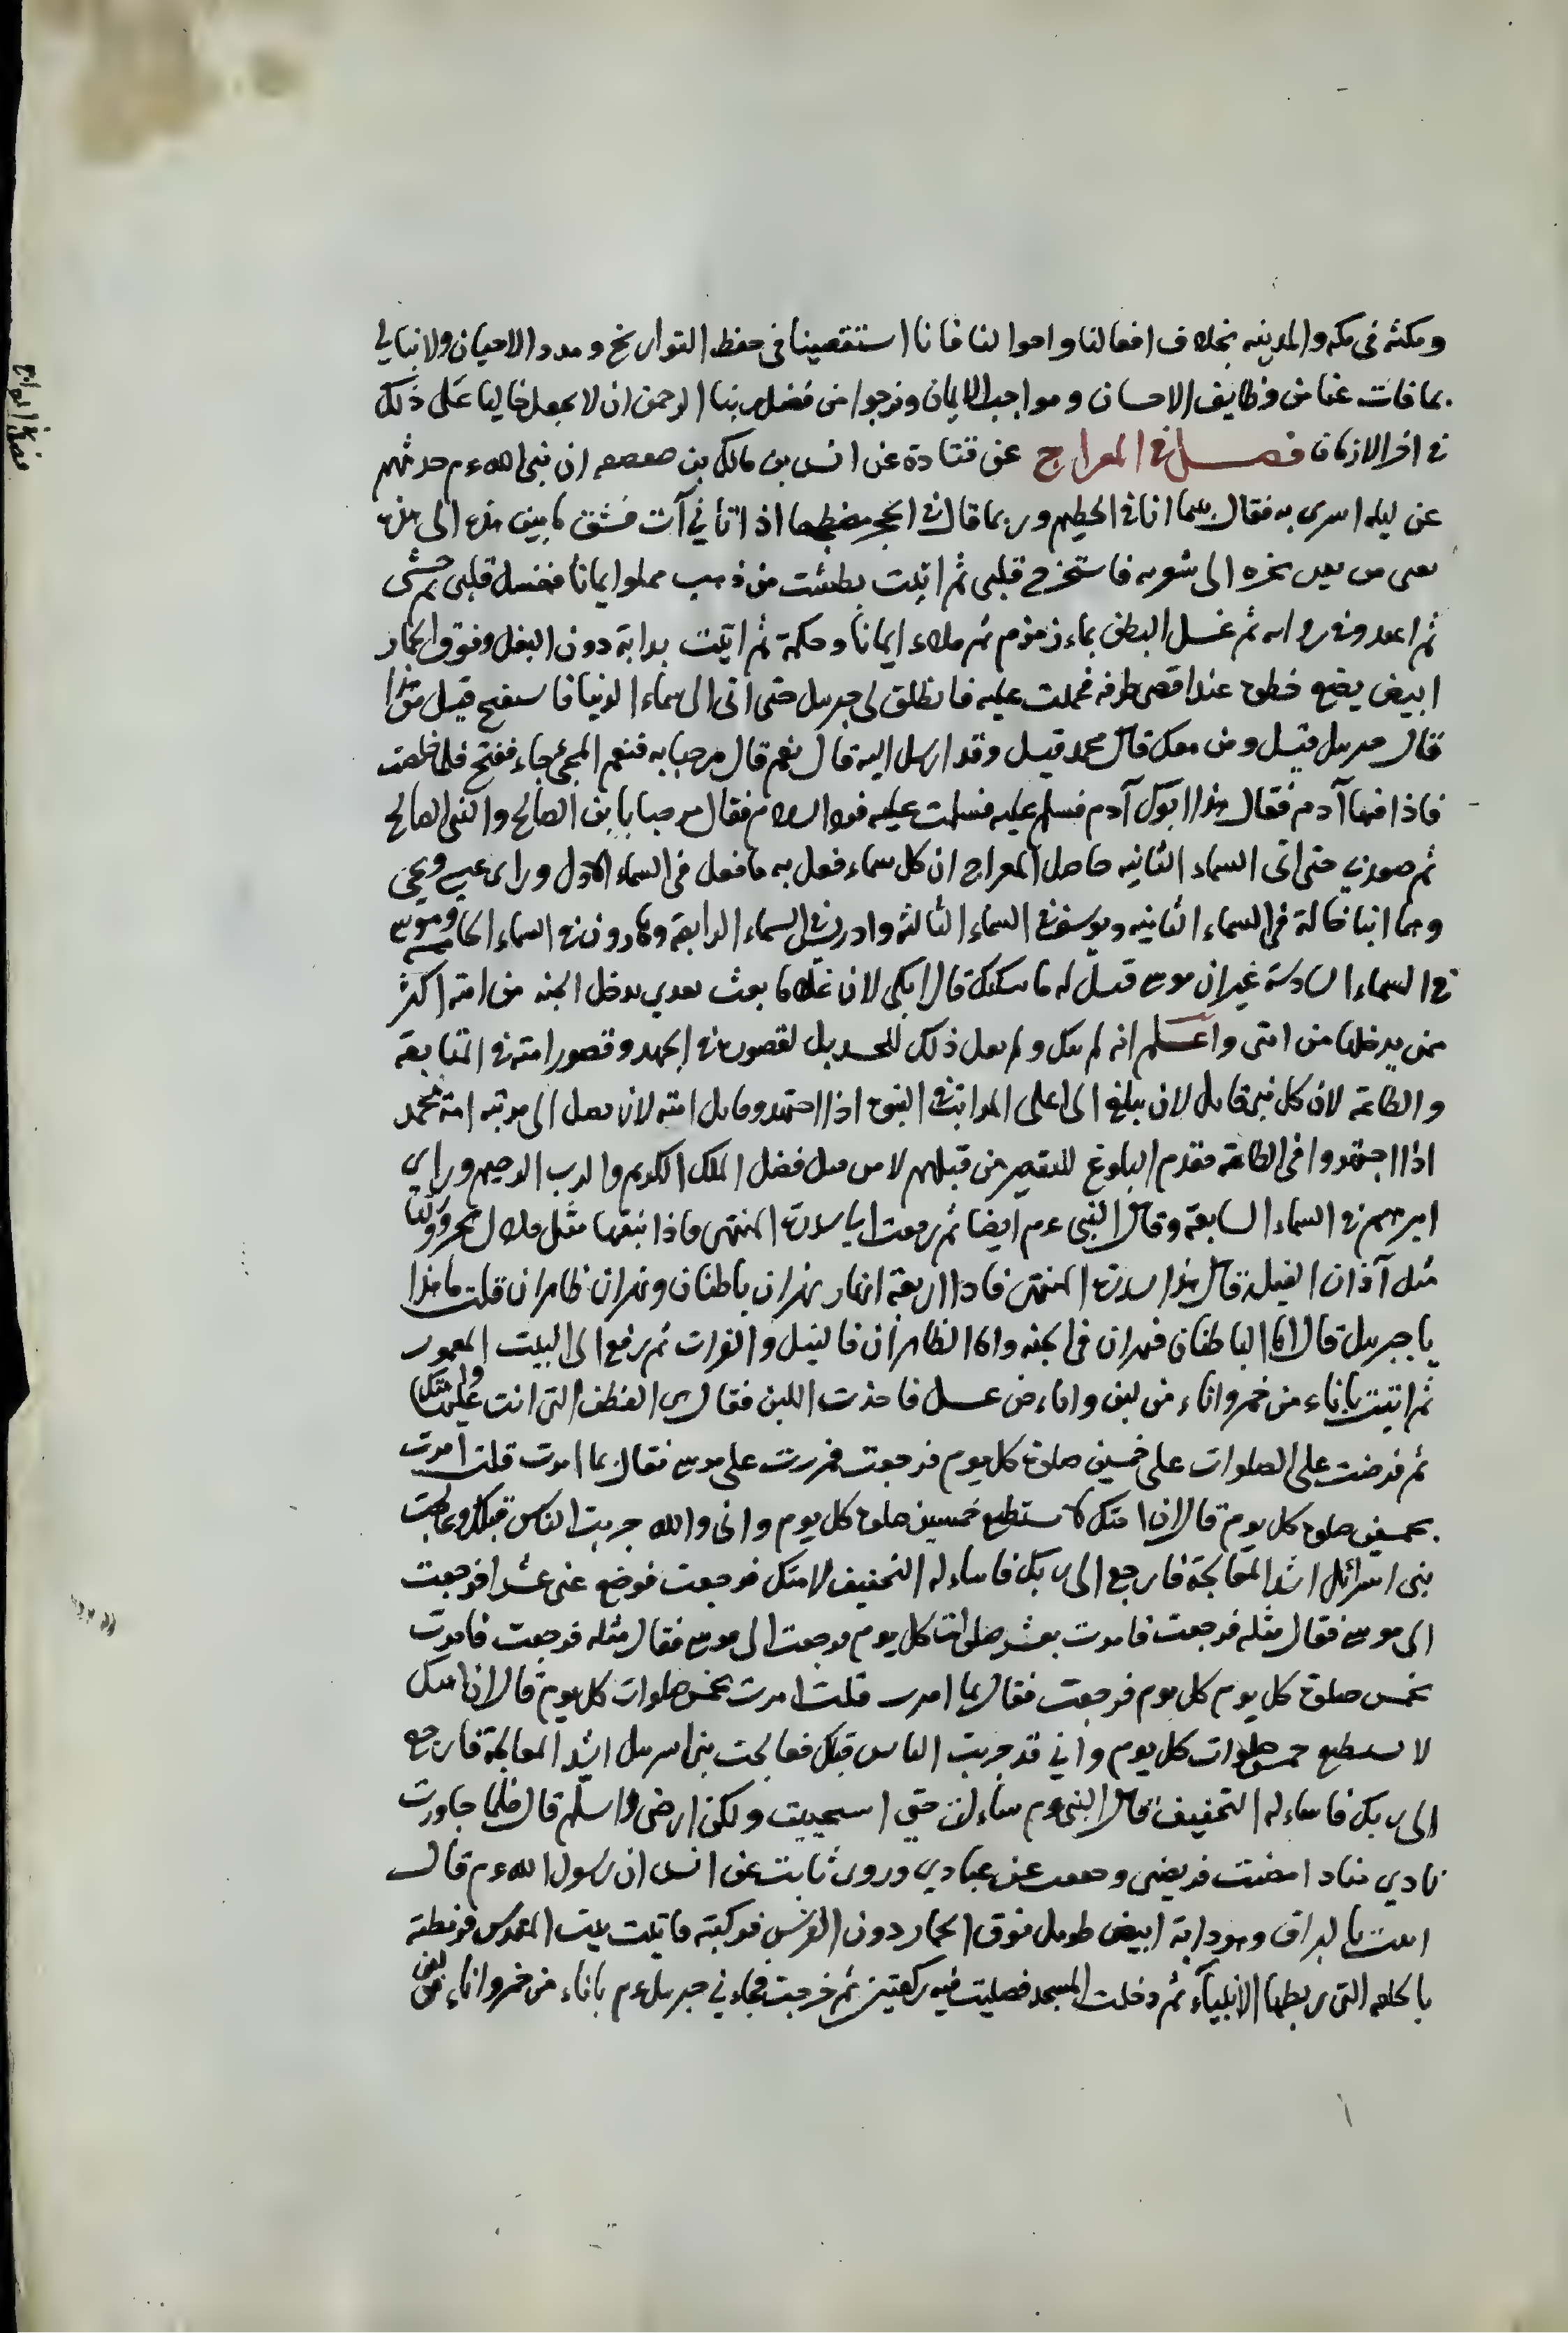 ومكثه فى مكه والمدينه بخلاف افعالنا واحوالنا فانا استقصينا فى حفظ التواريخ ومدد الاحيان ولا نبالى
بما فات عنا من وظايف الاحسان ومواجب الايمان ونرجوا من فضل ربنا الرحمن ان لا يجعل خالينا على ذلك
فى اخر الازمان فصل فى المعراج عن قتادة عن انس بن مالك بن صعصعه ان نبى الله عم حدثهم
عن ليله اسرى به فقال بينما انا فى الحطيم وربما قال فى الحجر مضطجعا اذ اتانى آت فشق ما بين هذه الى هذه
يعنى من نحره الى شعرته فاستخرج قلبى ثم اتيت بطشت من ذهب مملوا ايمانا فغسل قلبى ثم حشى
ثم اعيد وفى روايه ثم غسل البطن بماء زمزم ثم ملاء ايمانا وحكمة ثم اتيت بدابة دون البغل وفوق الحمار
ابيض يضع خطوه عند اقصى طرفه فحملت عليه فانطلق بى جبريل حتى اتى السماء الدنيا فاستفتح قيل من هذا
قال جبريل قيل ومن معك قال محمد قيل وقد ارسل اليه قال نعم قال مرحبا به فنعم المجئ جاء ففتح فلما خلصت
فاذا فيها آدم فقال هذا ابوك آدم فسلم عليه فسلمت عليه فرد السلام فقال مرحبا بابن الصالح والنبى الصالح
ثم صعد بى حتى اتى السماء الثانيه حاصل المعراج ان كل سماء فعل به ما فعل فى السماء الاول وراى عيسى ويحيى
وهما ابنا خالة فى السماء الثانيه ويوسف فى السماء الثالثه وادريس فى السماء الرابعة وهارون فى السماء الخامسه وموسى
فى السماء السادسة غير ان موسى قيل له ما يبكيك قال ابكى لان غلاما بعث بعدي يدخل الجنه من امته اكثر
ممن يدخلها من امتى واعلم انه لم يبك ولم يقل ذلك للحسد بل لقصوره فى الجهد وقصور امته فى المتابعة
والطاعة لان كل نبى قابل لان يبلغ الى اعلى المراتب فى النبوه اذا اجتهد وقابل امته لان يصل الى مرتبه امة محمد
اذا اجتهدوا فى الطاعه فقدم البلوغ للتقصير من قبلهم لا من قبل فضل الملك الكريم والرب الرحيم وراى
ابرهيم فى السماء السابعة وقال النبى عم ايضا ثم رفعت الى سدرة المنتهى فاذا نبقها مثل قلال هجر وورقها
مثل آذان الفيلة قال هذا سدرة المنتهى فاذا اربعة انهار نهران باطنان ونهران ظاهران قلت ما هذا
يا جبريل قال اما الباطنان فنهران فى الجنه واما الظاهران فالنيل والفرات ثم رفع الى البيت المعمور
ثم اتيت باناء من خمر واناء من لبن واناء من عسل فاخذت اللبن فقال هى الفطرة التى انت عليها وامتك
ثم فرضت على الصلوات على خمسين صلوة كل يوم فرجعت فمررت على موسى فقال بما امرت قلت امرت
بخمسين صلوة كل يوم قال ان امتك لا يستطيع خمسين صلوة كل يوم وانى والله جربت الناس قبلك وعالجت
بنى اسرائل اشد المعالجة فارجع الى ربك فاساءله التخفيف لامتك فرجعت فوضع عنى عشرا فرجعت
الى موسى فقال مثله فرجعت فامرت بعشر صلوات كل يوم فرجعت الى موسى فقال مثله فرجعت فامرت
بخمس صلوة كل يوم كل يوم فرجعت فقال بما امرت قلت امرت بخمس صلوات كل يوم قال ان امتك
لا يستطيع خمس صلوات كل يوم وانى قد جربت الناس قبلك فعالجت بنى اسريل اشد المعالجة فارجع
الى ربك فاساءله التخفيف قال النبى عم ساءلت حتى استحييت ولكن ارضى واسلم قال فلما جاوزت
نادي مناد امضيت فريضتى وخففت عن عبادي وروى ثابت عن انس ان رسول الله عم قال
اتيت بالبراق وهو دابة ابيض طويل فوق الحمار دون الفرس فركبته فاتيت بيت المقدس فربطته
بالحلقه التى ربطها الانبياء ثم دخلت المسجد فصليت فيه ركعتين ثم خرجت فجاءنى جبريل عم باناء من خمر واناء من لبن